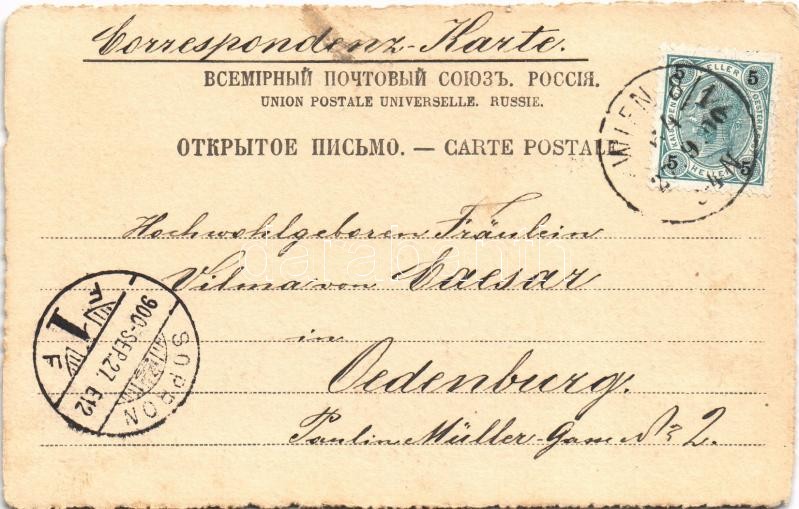 Correspondenz-Karte.
ВСЕМІРНЫЙ ПОЧТОВЫЙ СОЮЗЪ. РОССІЯ.
UNION POSTALE UNIVERSELLE. RUSSIE.
ОТКРЫТОЕ ПИСЬМО. — CARTE POSTALE
5 HELLER 5
5 HELLER 5
WIEN
Hochwohlgeboren Fräulein
Vilma von Caesar
in
Oedenburg.
Paulin Müller-Gasse № 2.
SOPRON
900-SEP.27. 612
F 1 F
darabanth